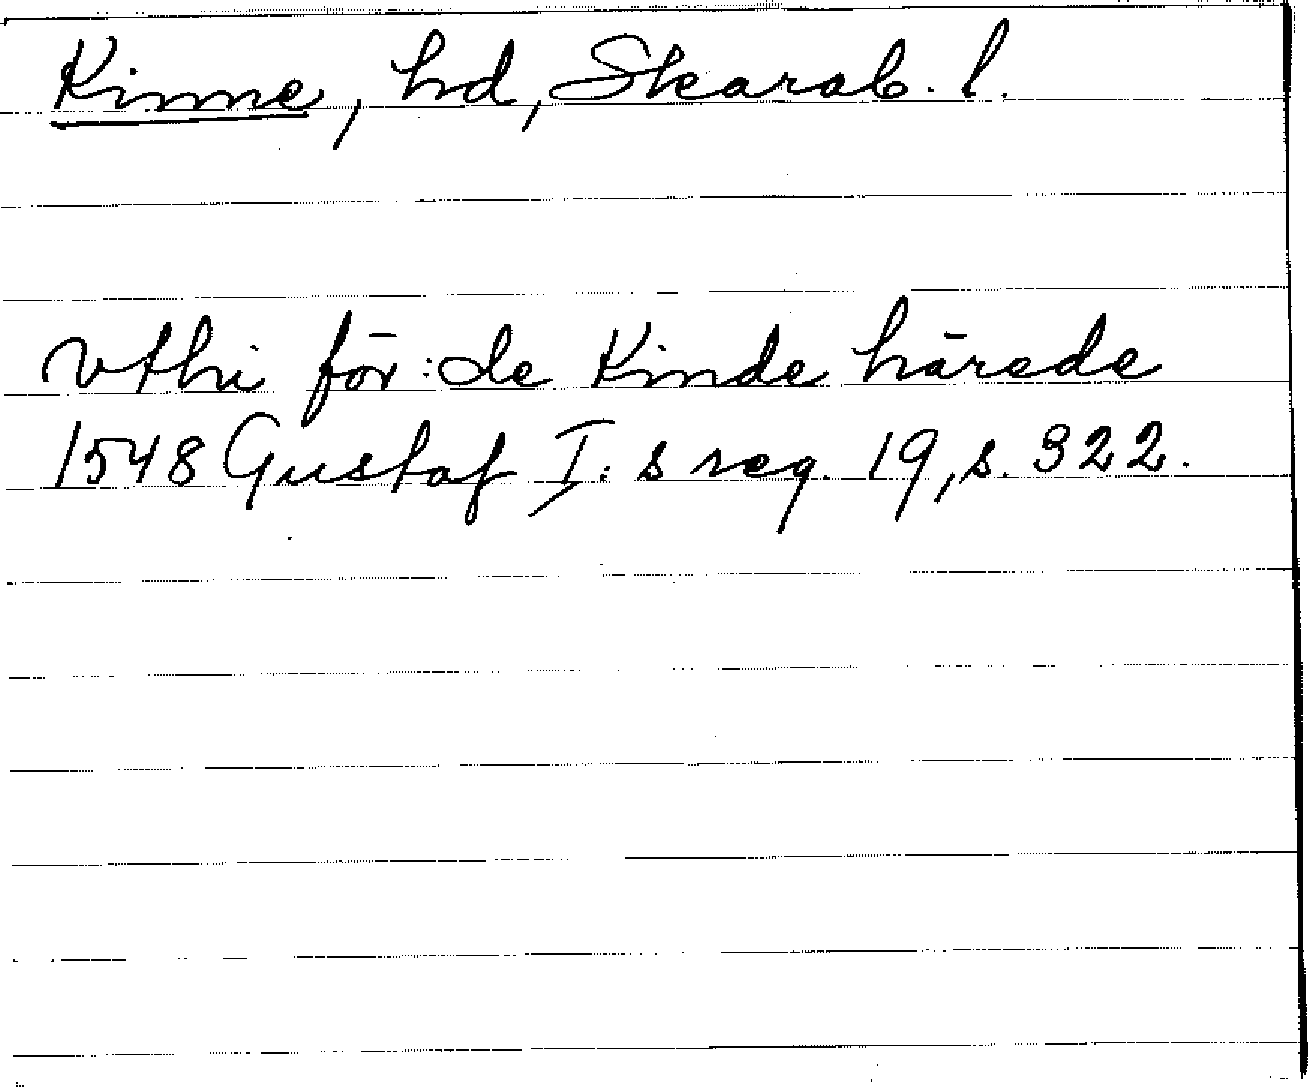 Kinne, hd, Skarab. l.
vthi för:de Kinde härede
1548 Gustaf I:s reg. 19, s. 322.